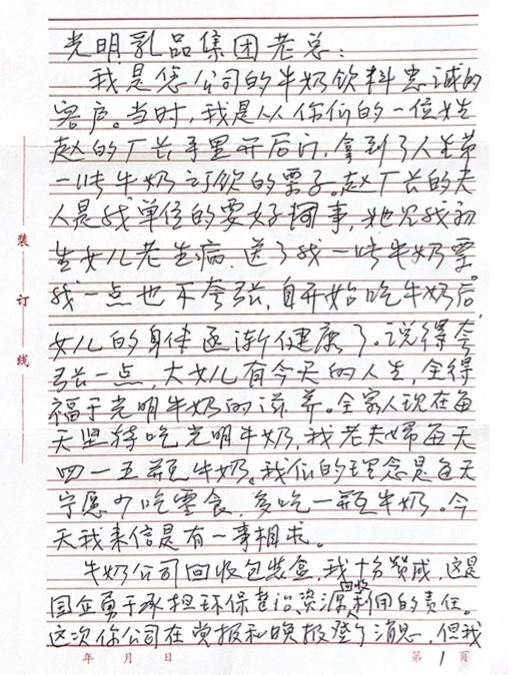 光明乳品集团老总：
我是您公司的牛奶饮料忠诚的
客户。当时，我是从你们的一位姓
赵的厂长手里开后门，拿到了人生第
一张牛奶订饮的票子。赵厂长的夫
人是我单位的要好同事，她见我初
生女儿老生病，送了我一张牛奶票。
我一点也不夸张，自开始吃牛奶后，
女儿的身体逐渐健康了。说得夸
张一点，大女儿有今天的人生，全得
福于光明牛奶的滋养。全家人现在每
天坚持吃光明牛奶，我老夫妇每天
四－五瓶牛奶。我们的理念是每天
宁愿少吃零食，多吃一瓶牛奶。今
天我来信是有一事相求。
牛奶公司回收包装盒，我十分赞成，这是
国企勇于承担环保 资源回收利用的责任。
这次你公司在党报和晚报登了消息，但我
装
订
线
年 月 日
第 1 页